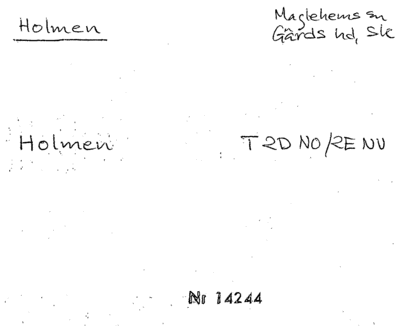 Holmen
Maglehems sn
Gärds hd, Sk
Holmen
T 2D NO/2E NV
Nr 14244